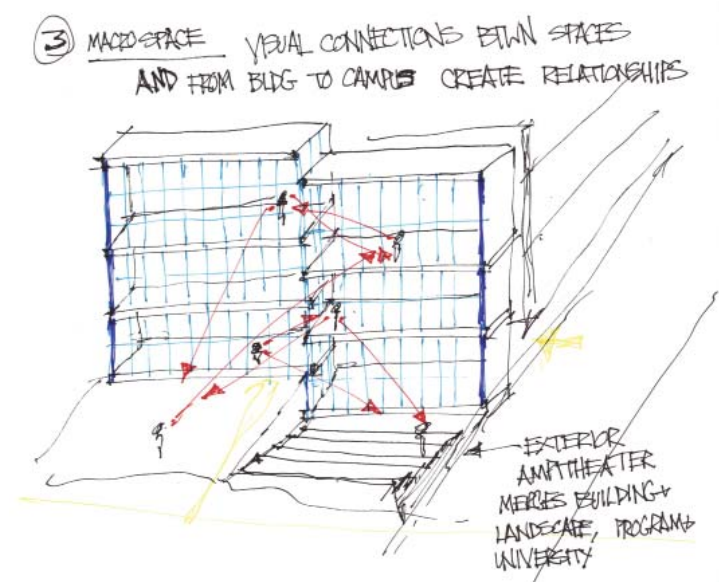 3 MACRO SPACE VISUAL CONNECTIONS BTWN SPACES
AND FROM BLDG TO CAMPUS CREATE RELATIONSHIPS
EXTERIOR
AMPITHEATER
MERGES BUILDING+
LANDSCAPE, PROGRAM+
UNIVERSITY